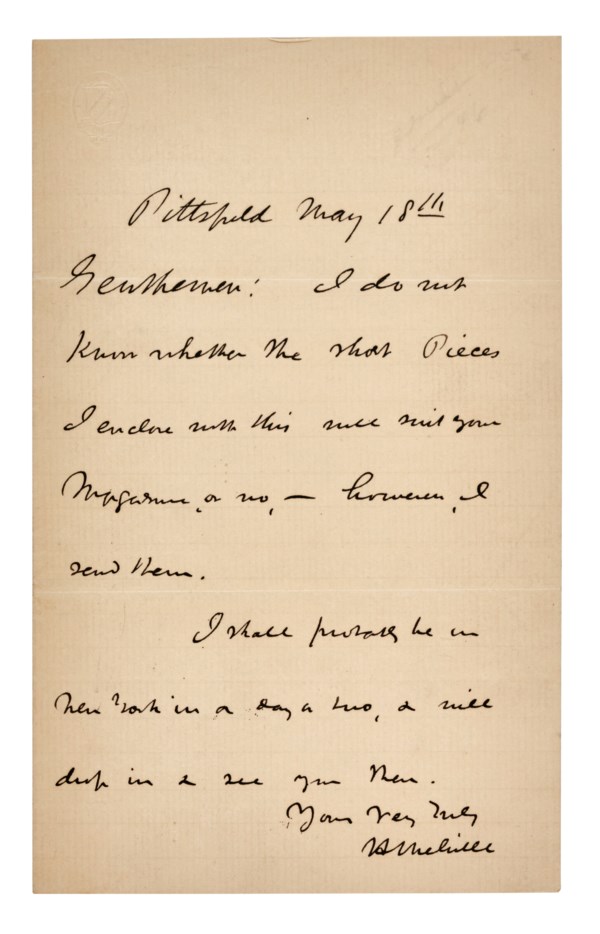 Pittsfield May 18th
Gentlemen: I do not
Know whether the short Pieces
I enclose with this will suit your
Magazine, or no, — however, I
send them.
I shall probably be in
New York in a day or two, & will
drop in & see you then.
Yours Very Truly
H Melville